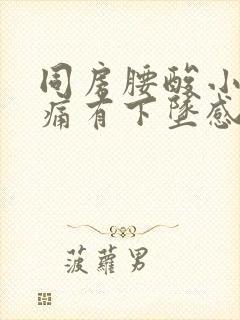 同房腰酸小
痛有下坠感
菠萝男